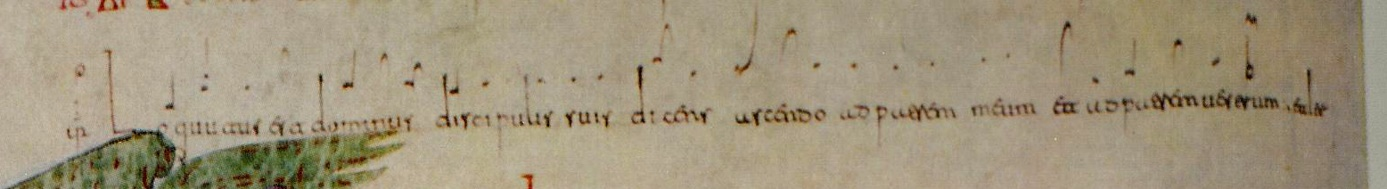 Loquutus est dominus discipulis suis dicens ascendo ad patrem meum et ad patrem uestrum